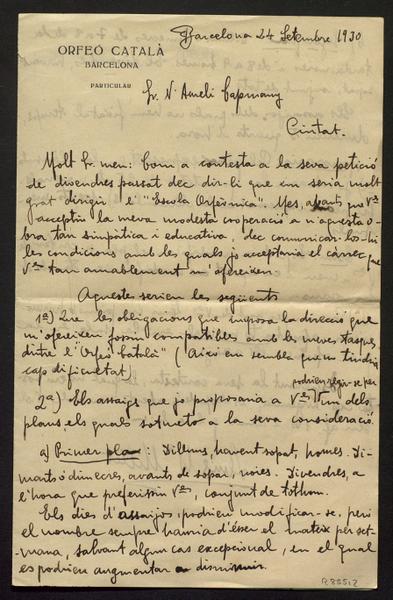 Barcelona 24 Setembre 1930
ORFEÓ CATALÀ
BARCELONA
PARTICULAR
Sr. N'Aureli Capmany
Ciutat.
Molt Sr. meu: Com a contesta a la seva petició
de divendres passat dec dir-li que em seria molt
grat dirigir l'"Escola Orfeònica". Mes, abans que Vs.
acceptin la meva modesta cooperació a n'aquesta o-
bra tan simpàtica i educativa, dec comunicar-los-hi
les condicions amb les quals jo acceptaria el càrrec que
Vs. tan amablement m'ofereixen.
Aquestes serien les següents
1ª) Que les obligacions que imposa la direcció que
m'ofereixen fossin compatibles amb les meves tasques
dintre l'"Orfeó Català" (Això em sembla que no tindria
cap dificultat)
podrien regir-se per
2ª) Els assaigs que jo proposaria a Vs. un dels
plans els quals sotmeto a la seva consideració.
a) Primer pla: Dilluns, havent sopat, homes. Di-
marts ó dimecres, avants de sopar, noies. Divendres, a
l'hora que prefereixin Vs., conjunt de tothom.
Els dies d'assajos, podrien modificar-se, però
el nombre sempre hauria d'ésser el mateix per set-
mana, salvant algun cas excepcional, en el qual
es podrien augmentar o disminuir.
R.83512